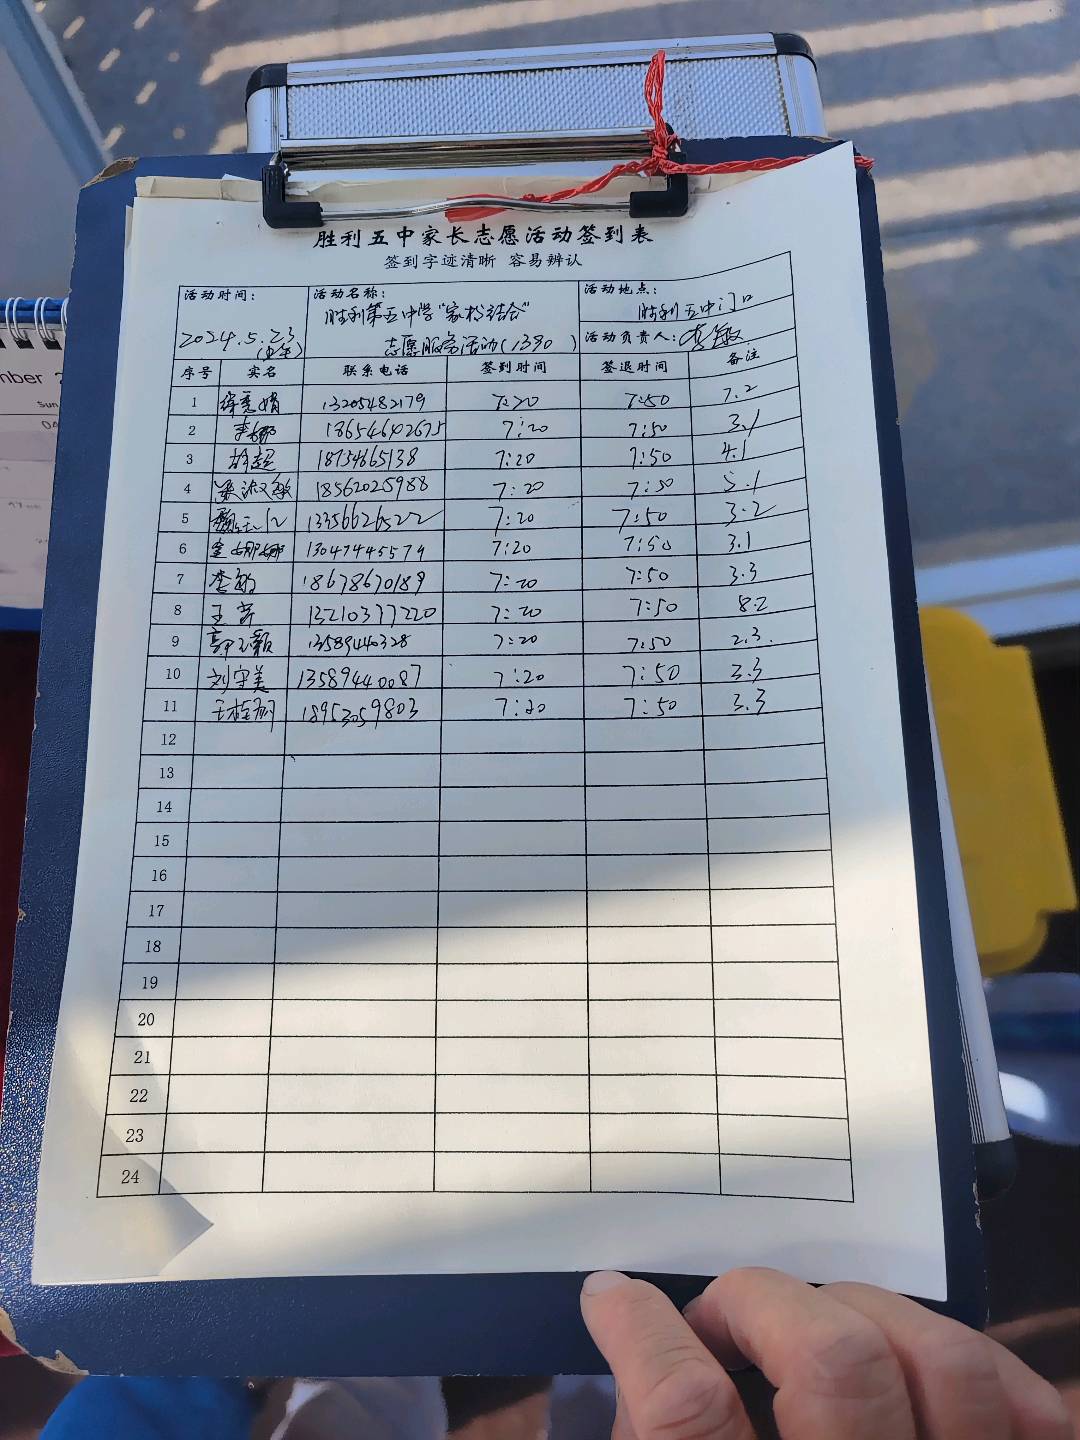 胜利五中家长志愿活动签到表
签到字迹清晰 容易辨认
活动时间: 活动名称: 活动地点:
胜利第五中学"家校结合" 胜利五中门口
2024.5.23 志愿服务活动(1390) 活动负责人:李敏
序号 实名 联系电话 签到时间 签退时间 备注
1 13205482179 7:20 7:50 7.2
2 李娜 18654642675 7:20 7:50 3.1
3 胡超 18754665138 7:20 7:50 4.1
4 18562025988 7:20 7:50 5.1
5 13356626522 7:20 7:50 3.2
6 13047445579 7:20 7:50 3.1
7 李敏 18678670189 7:20 7:50 3.3
8 王芳 13210377220 7:20 7:50 8.2
9 13589440328 7:20 7:50 2.3.
10 刘守美 13589440087 7:20 7:50 3.3
11 18953059803 7:20 7:50 3.3
12
13
14
15
16
17
18
19
20
21
22
23
24
mber
Sun